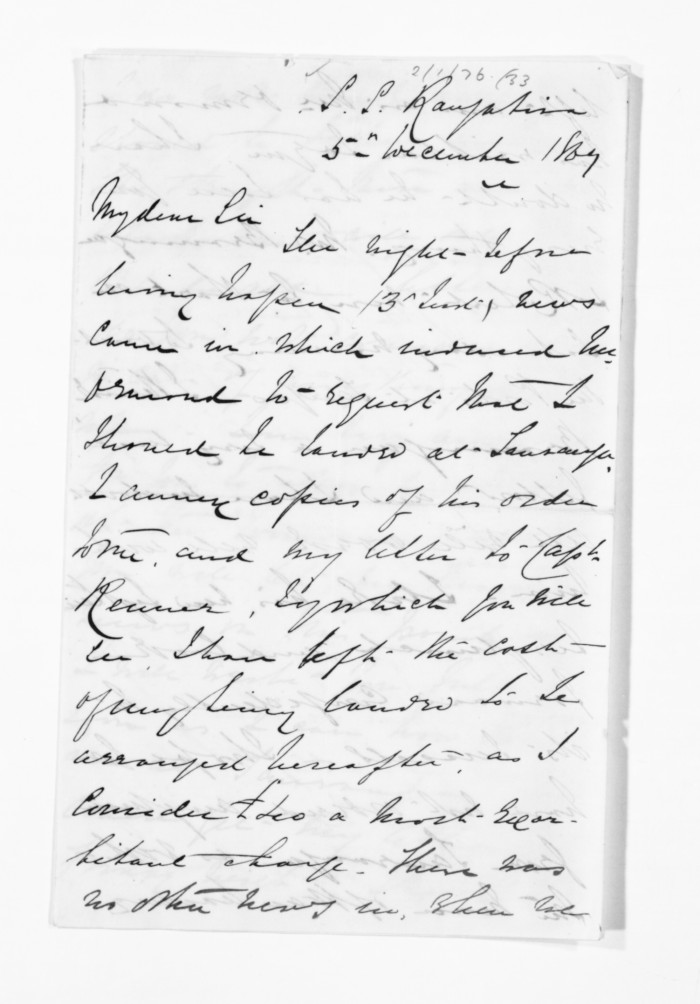 2/1/76./33
S. S. Rangatira
5th December 1869
My dear Sir
The night before
leaving Napier (3d Inst) news
came in which induced Mr
Ormond to request that I
should be landed at Tauranga.
I annex copies of his order
to me, and my letter to Capt.
Renner, by which you will
see I have left the cost
of my being landed to be
arranged hereafter, as I
consider a most exor-
bitant charge. There was
no other news in, when we